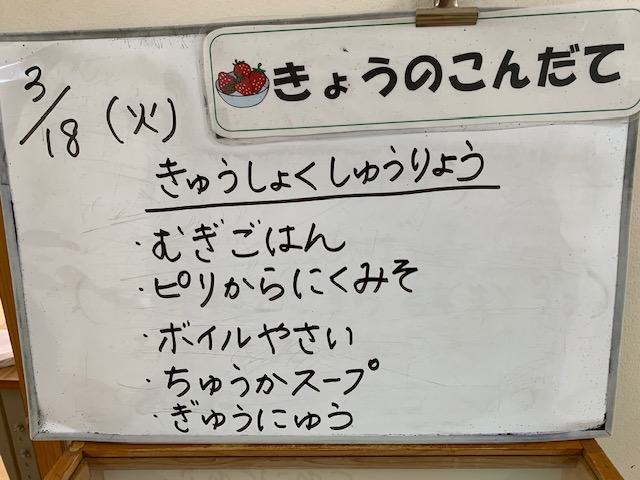 きょうのこんだて
3/18（火）
きゅうしょくしゅうりょう
・むぎごはん
・ピリからにくみそ
・ボイルやさい
・ちゅうかスープ
・ぎゅうにゅう